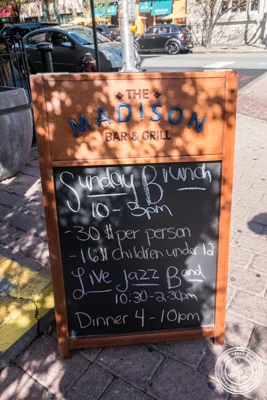 THE
MADISON
BAR & GRILL
Sunday Brunch
10 - 3pm
- 30$ per person
- 16$ children under 12
Live Jazz Band
10:30 - 2:30pm
Dinner 4 - 10pm